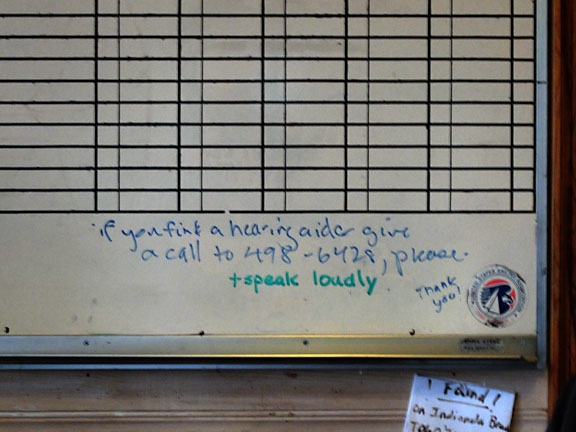 if you fink a hearing aider give
a call to 498-6428, please.
+speak loudly
Thank
you!
! Found !
on Indianola